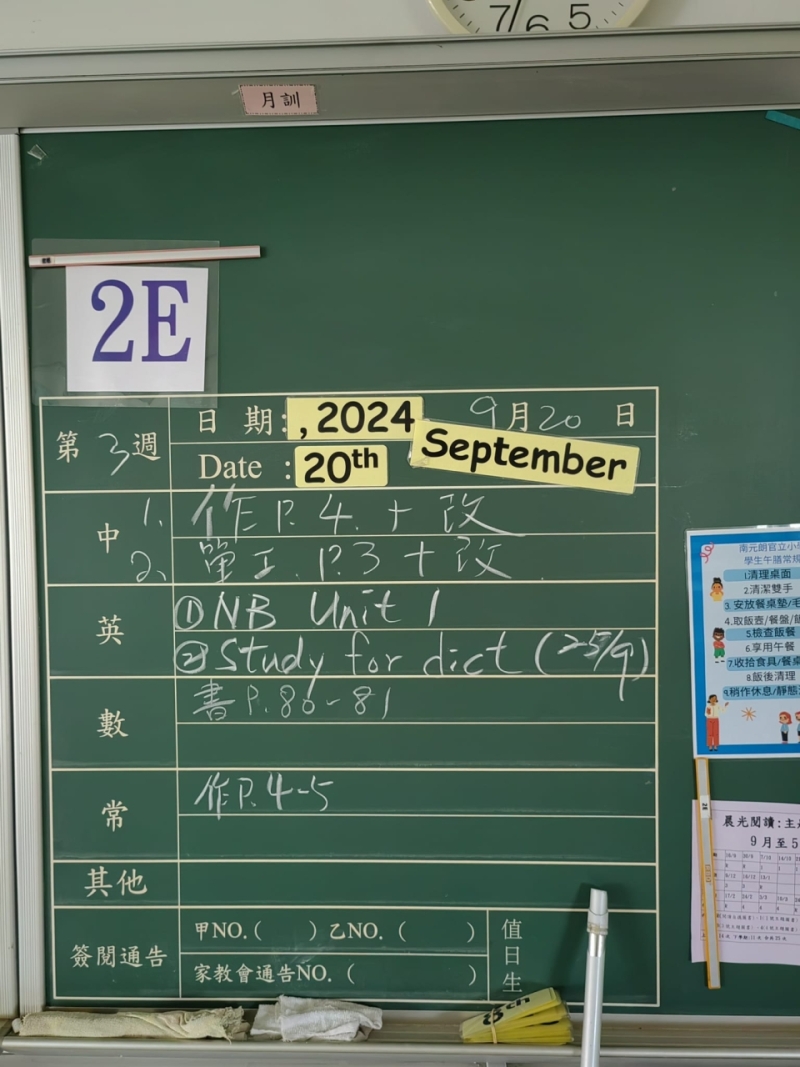 7 6 5
月訓
2E
第 3 週
日 期: , 2024 9月20 日
Date : 20th September
中
1. 作 P. 4. + 改
2. 單工. P.3 + 改
英
① NB Unit 1
② Study for dict (25/9)
數
書 P.80-81
常
作 P. 4-5
其他
簽閱通告
甲NO.( ) 乙NO. ( )
家教會通告NO. ( )
值日生
8th
南元朗官立小
學生午膳常規
1.清理桌面
2.清潔雙手
3. 安放餐桌墊/毛
4.取飯壺/餐盤/飯
5.檢查飯餐
6.享用午餐
7.收拾食具/餐桌
8.飯後清理
9.稍作休息/靜態
晨光閱讀:主
9 月至 5